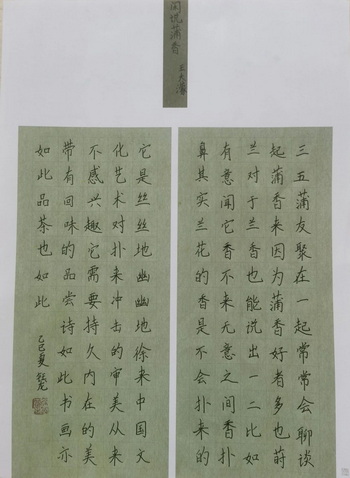 闲说蒲香
王大
三五蒲友聚在一起常常会聊谈
起蒲香来因为蒲香好者多也莳
兰对于兰香也能说出一二比如
有意闻它香不来无意之间香扑
鼻其实兰花的香是不会扑来的
它是丝丝地幽幽地徐来中国文
化艺术对扑来冲击的审美从来
不感兴趣它需要持久内在的美
带有回味的品尝诗如此书画亦
如此品茶也如此
乙巳夏